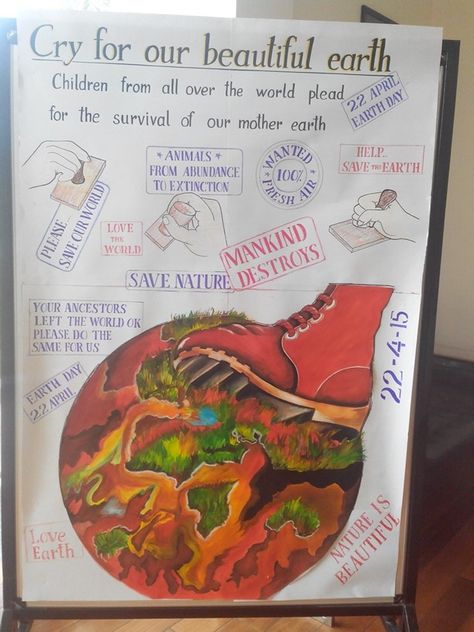 Cry for our beautiful earth
Children from all over the world plead
for the survival of our mother earth
22 APRIL
EARTH DAY
ANIMALS
FROM ABUNDANCE
TO EXTINCTION
WANTED
100%
FRESH AIR
HELP...
SAVE THE EARTH
PLEASE
SAVE OUR WORLD
LOVE
THE
WORLD
MANKIND
DESTROYS
SAVE NATURE
YOUR ANCESTORS
LEFT THE WORLD OK
PLEASE DO THE
SAME FOR US
22-4-15
EARTH DAY
22 APRIL
Love
Earth
NATURE IS
BEAUTIFUL